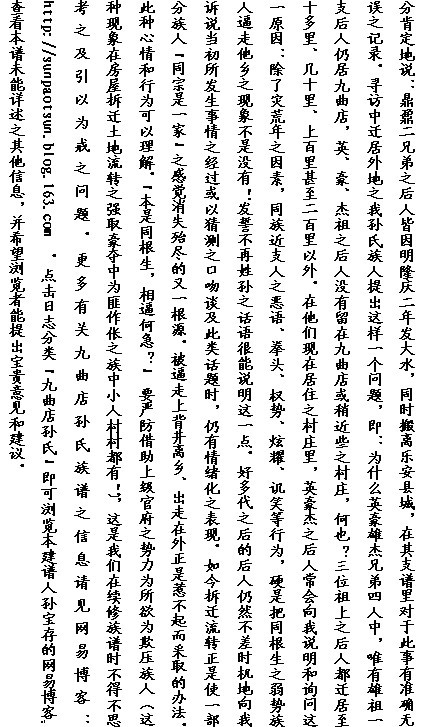 分肯定地说：鼎鼐二兄弟之后人皆因明隆庆二年发大水，同时搬离乐安县城，在其支谱里对于此事有准确无
误之记录。寻访中迁居外地之我孙氏族人提出这样一个问题，即：为什么英豪雄杰兄弟四人中，唯有雄祖一
支后人仍居九曲店，英、豪、杰祖之后人没有留在九曲店或稍近些之村庄，何也？三位祖上之后人都迁居至
十多里、几十里、上百里甚至二百里以外。在他们现在居住之村庄里，英豪杰之后人常会向我说明和询问这
一原因：除了灾荒年之因素，同族近支人之恶语、拳头、权势、炫耀、讥笑等行为，硬是把同根生之弱势族
人逼走他乡之现象不是没有！发誓不再姓孙之话语很能说明这一点。好多代之后的后人仍然不差时机地向我
诉说当初所发生事情之经过或以猜测之口吻谈及此类话题时，仍有情绪化之表现。如今拆迁流转正是使一部
分族人「同宗是一家」之感觉消失殆尽的又一根源。被逼走上背井离乡、出走在外正是惹不起而采取的办法。
此种心情和行为可以理解。「本是同根生，相逼何急？」要严防借助上级官府之势力为所欲为欺压族人（这
种现象在房屋拆迁土地流转之强取豪夺中为匪作伥之族中小人村村都有！），这是我们在续修族谱时不得不思
考之及引以为戒之问题。更多有关九曲店孙氏族谱之信息请见网易博客：
http://sunpaotsun.blog.163.com 。点击日志分类「九曲店孙氏」即可浏览本建谱人孙宝存的网易博客，
查看本谱未能详述之其他信息，并希望浏览者能提出宝贵意见和建议。